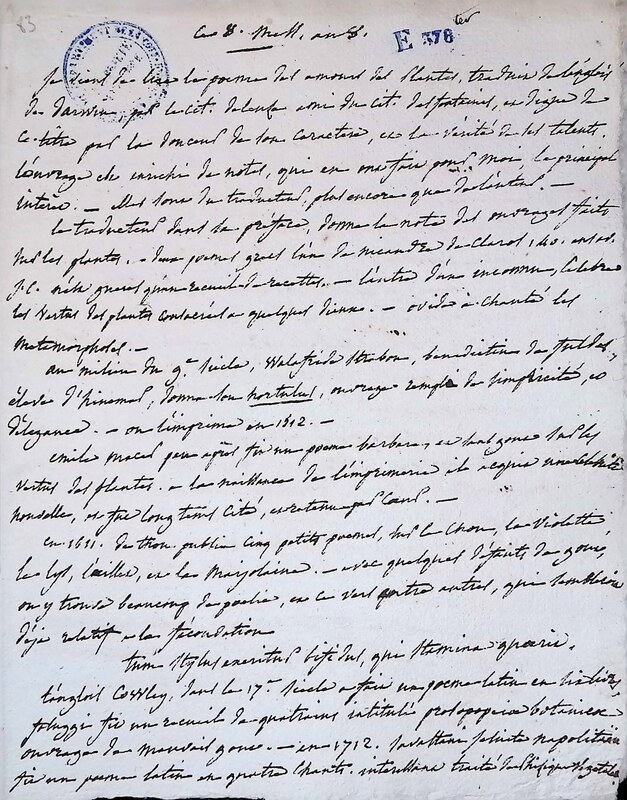 83
ce 8. Mess. an 8.
E 378 ter
je viens de lire le poeme des amours des plantes, traduit de l'anglois
de darwin par le cit. deleuze ami du cit. desfontaines, et digne de
ce titre par la douceur de son caractere, et la vérité de ses talents.
l'ouvrage est enrichi de notes, qui en ont fait pour moi, le principal
intérêt. — elles sont du traducteur, plus encore que de l'auteur. —
le traducteur dans sa préface, donne la note des ouvrages faits
sur les plantes. — deux poemes grecs l'un de nicandre de claros 140. ans av.
J.C. n'est gueres qu'un recueil de recettes. — l'autre d'un inconnu, celebre
les vertus des plantes consacrées a quelques dieux. — ovide a chanté les
metamorphoses. —
au milieu du 9e. siecle, Walafride Strabon, benedictin de fulde,
éleve d', donna son hortulus, ouvrage rempli de simplicité, et
d'élegance. — on l'imprima en 1512. —
emile macer peu après, fit un poeme barbare, et sans gout sur les
vertus des plantes. a la naissance de l'imprimerie il acquit une célébrité
nouvelle, et fut long tems cité, et retenu par coeur. —
en 1611. de thou publia cinq petits poemes, sur le chou, la violette
le lys, l'oeillet, et la marjolaine. — avec quelques défauts de gout,
on y trouve beaucoup de poesie, et ce vers entre autres, qui semble
déja relatif a la fécondation
tum stylus exeritur bifidus, qui stamina quaerit.
l'anglois Cowley, dans le 17e. siecle a fait un poeme latin en six livres,
fit un recueil de quatrains intitulé prosopopeia botanica
ouvrage de mauvais gout. — en 1712. savastani jesuite napolitain
fit un poeme latin en quatre chants. intéressant traité de phisique végétale